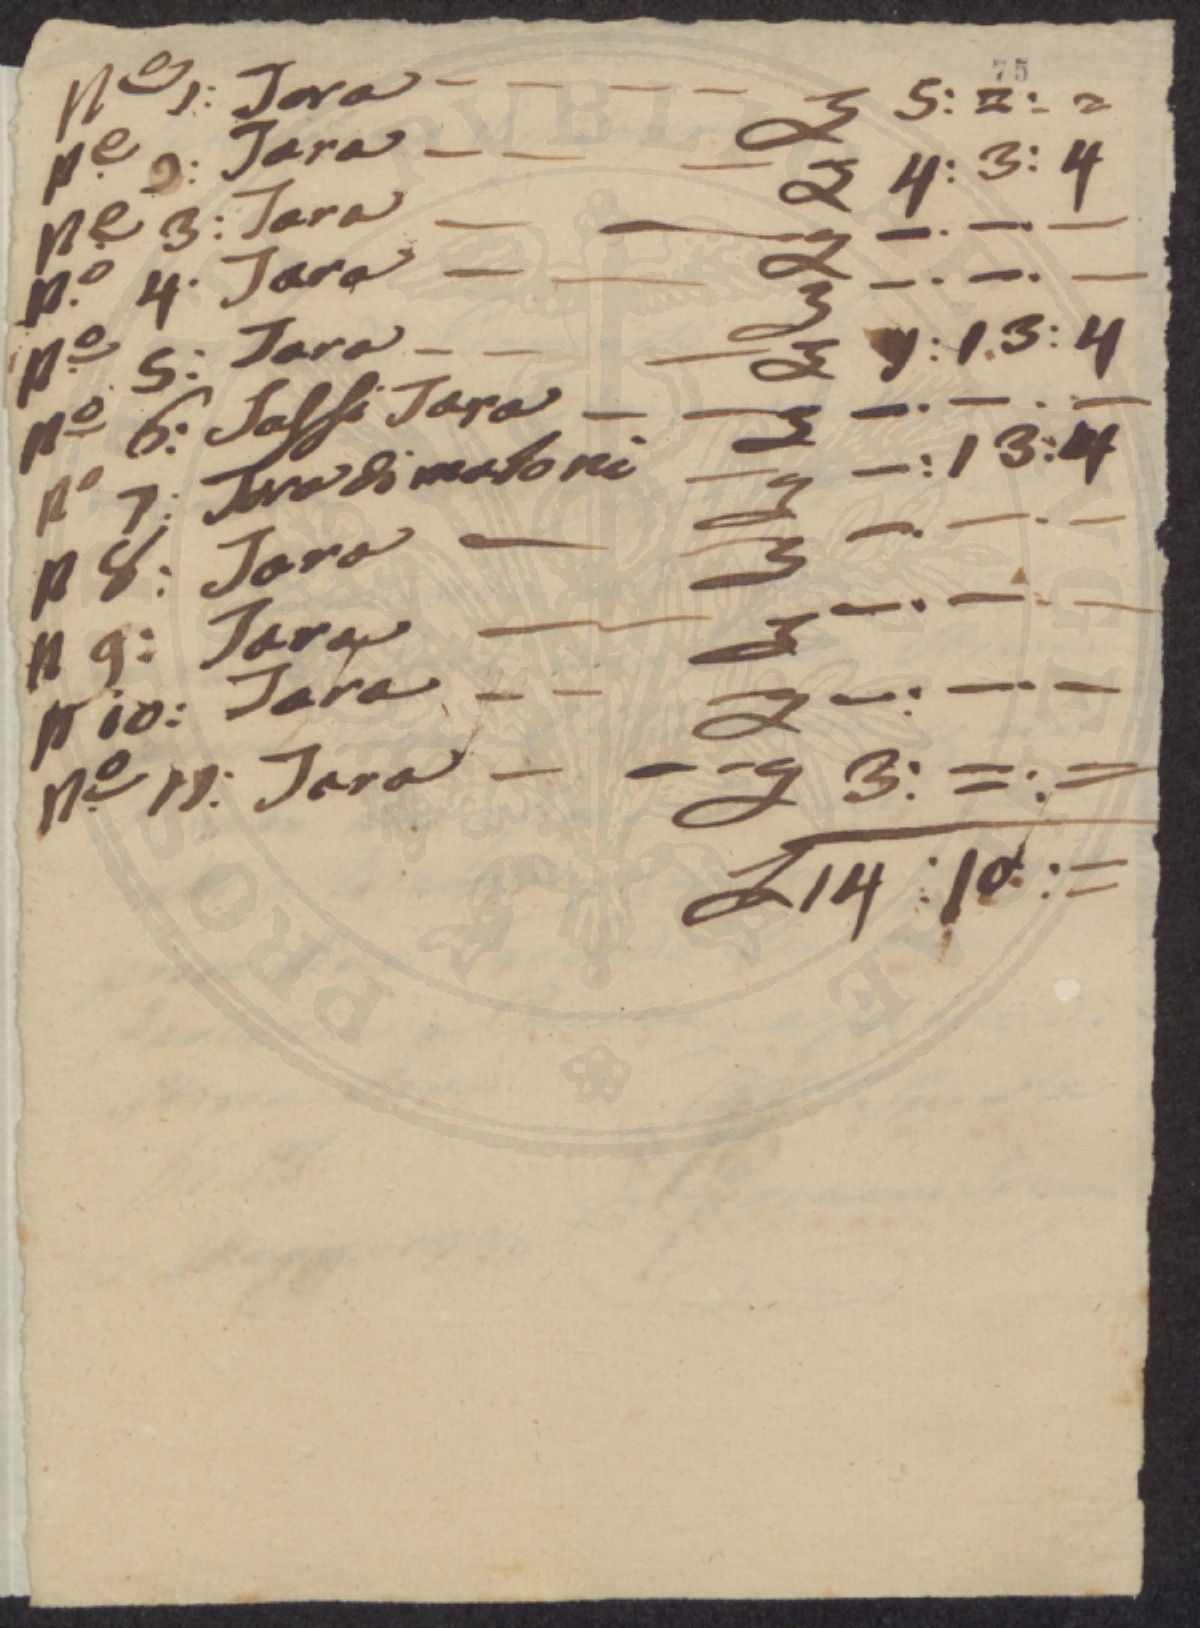 75
N.º 1: Tara £ 5: =: =
N.º 2: Tara £ 4: 3: 4
N.º 3: Tara £ —. —. —
N.º 4: Tara £ —. —. —
N.º 5: Tara £ 1: 13: 4
N.º 6: Tara £ —. —. —
Nº 7: Tara di matoni £ —: 13: 4
N 8: Tara £ —. —. —
N 9: Tara £ —. —. —
N 10: Tara £ —. —. —
N.º 11: Tara £ 3: =: =
£ 14: 10: =